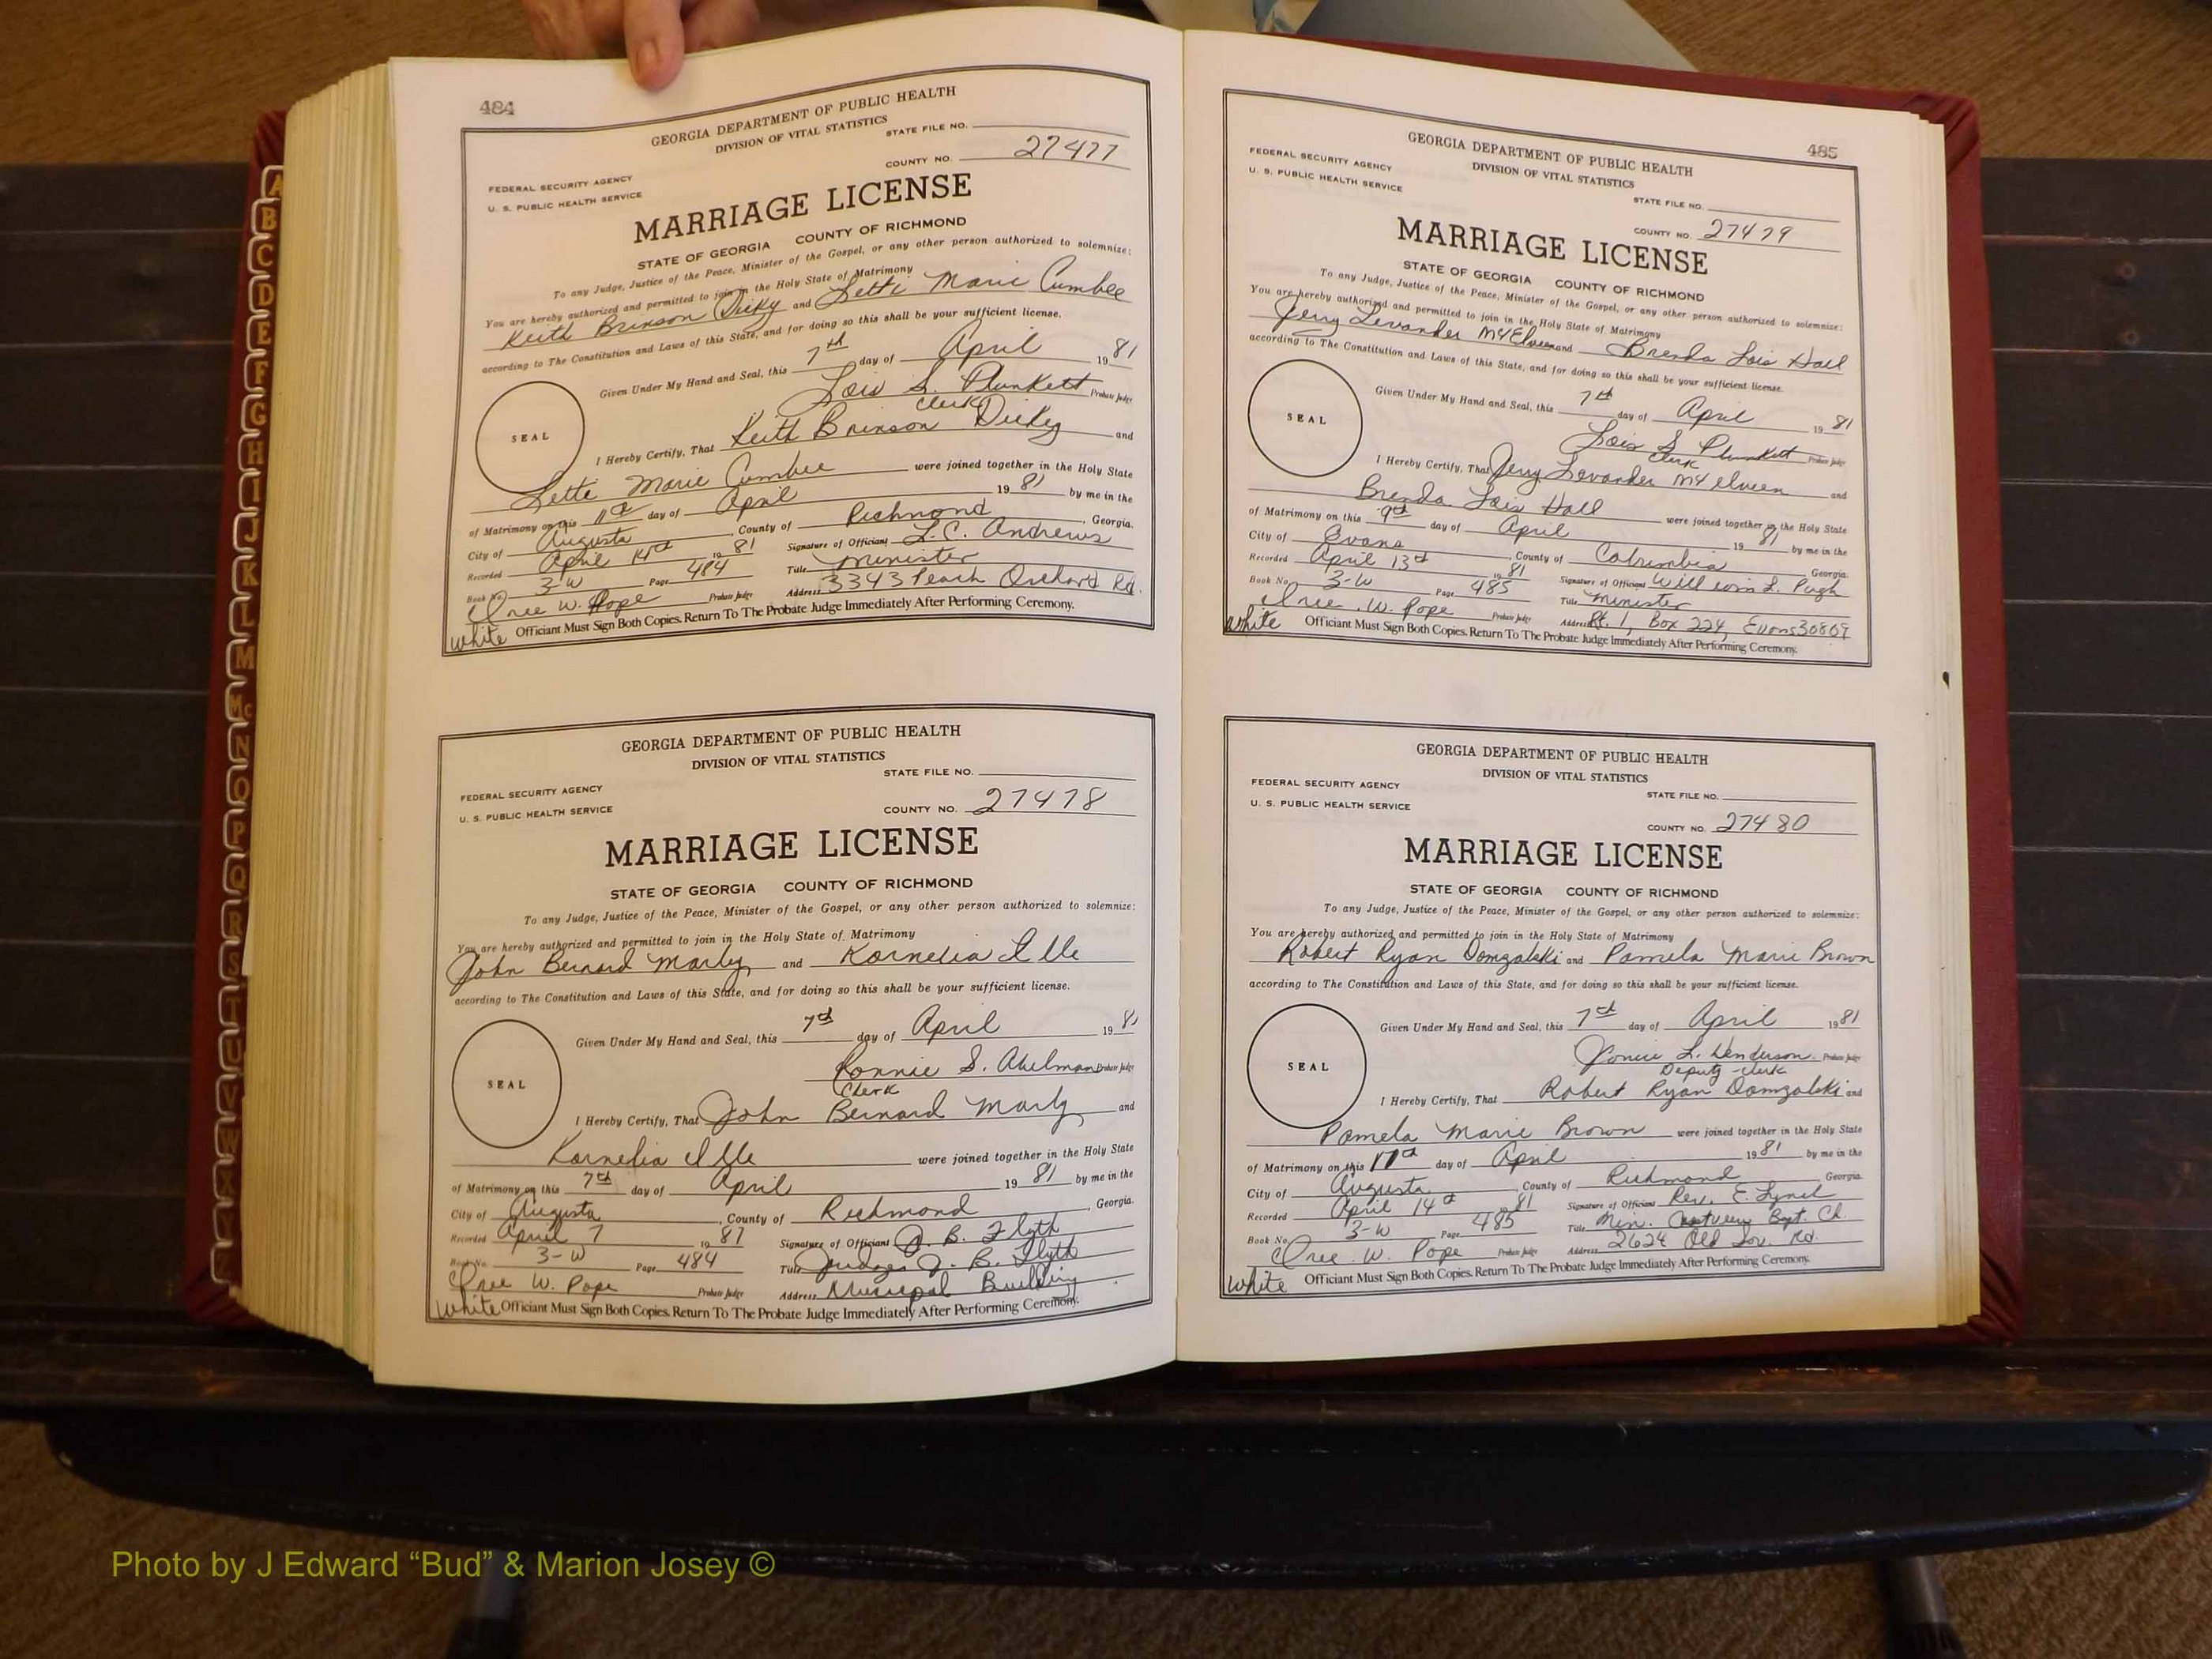 484
GEORGIA DEPARTMENT OF PUBLIC HEALTH
DIVISION OF VITAL STATISTICS
STATE FILE NO.
COUNTY NO. 27477
FEDERAL SECURITY AGENCY
U. S. PUBLIC HEALTH SERVICE
MARRIAGE LICENSE
STATE OF GEORGIA COUNTY OF RICHMOND
To any Judge, Justice of the Peace, Minister of the Gospel, or any other person authorized to solemnize:
You are hereby authorized and permitted to join in the Holy State of Matrimony
Keith Brinson Dicky and Lette Marie Cumbee
according to The Constitution and Laws of this State, and for doing so this shall be your sufficient license.
Given Under My Hand and Seal, this 7th day of April 1981
Lois S. Plunkett Probate Judge
Clerk
SEAL
I Hereby Certify, That Keith Brinson Dicky and
Lette Marie Cumbee were joined together in the Holy State
of Matrimony on this 11th day of April 1981 by me in the
City of Augusta, County of Richmond, Georgia.
Recorded April 1981 Signature of Officiant L.C. Andrews
Book No. 3-W Page 484 Title minister
Oree W. Pope Probate Judge Address 3343 Peach Orchard Rd.
white Officiant Must Sign Both Copies. Return To The Probate Judge Immediately After Performing Ceremony.
GEORGIA DEPARTMENT OF PUBLIC HEALTH
DIVISION OF VITAL STATISTICS
STATE FILE NO.
FEDERAL SECURITY AGENCY
U. S. PUBLIC HEALTH SERVICE
COUNTY NO. 27478
MARRIAGE LICENSE
STATE OF GEORGIA COUNTY OF RICHMOND
To any Judge, Justice of the Peace, Minister of the Gospel, or any other person authorized to solemnize:
You are hereby authorized and permitted to join in the Holy State of Matrimony
John Bernard Marly and Kornelia Ille
according to The Constitution and Laws of this State, and for doing so this shall be your sufficient license.
Given Under My Hand and Seal, this 7th day of April 1981
Ronnie S. Abelman Probate Judge
Clerk
SEAL
I Hereby Certify, That John Bernard Marly and
Kornelia Ille were joined together in the Holy State
of Matrimony on this 7th day of April 1981 by me in the
City of Augusta, County of Richmond, Georgia.
Recorded April 7 1981 Signature of Officiant J. B. Flyth
Book No. 3-W Page 484 Title Judge J. B. Flyth
Oree W. Pope Probate Judge Address Municipal Building
white Officiant Must Sign Both Copies. Return To The Probate Judge Immediately After Performing Ceremony.
485
GEORGIA DEPARTMENT OF PUBLIC HEALTH
DIVISION OF VITAL STATISTICS
FEDERAL SECURITY AGENCY
U. S. PUBLIC HEALTH SERVICE
STATE FILE NO.
COUNTY NO. 27479
MARRIAGE LICENSE
STATE OF GEORGIA COUNTY OF RICHMOND
To any Judge, Justice of the Peace, Minister of the Gospel, or any other person authorized to solemnize:
You are hereby authorized and permitted to join in the Holy State of Matrimony
Jerry Levander McElveen and Brenda Lois Hall
according to The Constitution and Laws of this State, and for doing so this shall be your sufficient license.
Given Under My Hand and Seal, this 7th day of April 1981
Lois S Plunkett Probate Judge
Clerk
SEAL
I Hereby Certify, That Jerry Levander McElveen and
Brenda Lois Hall were joined together in the Holy State
of Matrimony on this 9th day of April 1981 by me in the
City of Evans, County of Columbia Georgia.
Recorded April 13th 1981 Signature of Officiant William L. Pugh
Book No. 3-W Page 485 Title minister
Oree W. Pope Probate Judge Address Rt. 1, Box 224, Evans 30809
white Officiant Must Sign Both Copies. Return To The Probate Judge Immediately After Performing Ceremony.
GEORGIA DEPARTMENT OF PUBLIC HEALTH
DIVISION OF VITAL STATISTICS
FEDERAL SECURITY AGENCY
STATE FILE NO.
U. S. PUBLIC HEALTH SERVICE
COUNTY NO. 27480
MARRIAGE LICENSE
STATE OF GEORGIA COUNTY OF RICHMOND
To any Judge, Justice of the Peace, Minister of the Gospel, or any other person authorized to solemnize:
You are hereby authorized and permitted to join in the Holy State of Matrimony
Robert Ryan Domzalski and Pamela Marie Brown
according to The Constitution and Laws of this State, and for doing so this shall be your sufficient license.
Given Under My Hand and Seal, this 7th day of April 1981
L. Henderson Probate Judge
Deputy Clerk
SEAL
I Hereby Certify, That Robert Ryan Domzalski and
Pamela Marie Brown were joined together in the Holy State
of Matrimony on this day of April 1981 by me in the
City of Augusta, County of Richmond Georgia.
Recorded April 14th 1981 Signature of Officiant Rev. E. Lynch
Book No. 3-W Page 485 Title Min. Bapt. Ch.
Oree W. Pope Probate Judge Address 2624 Old Sav. Rd.
white Officiant Must Sign Both Copies. Return To The Probate Judge Immediately After Performing Ceremony.
A
B
C
D
E
F
G
H
I
J
K
L
M
Mc
N
O
P
Q
R
S
T
U
V
W
X
Photo by J Edward “Bud” & Marion Josey ©